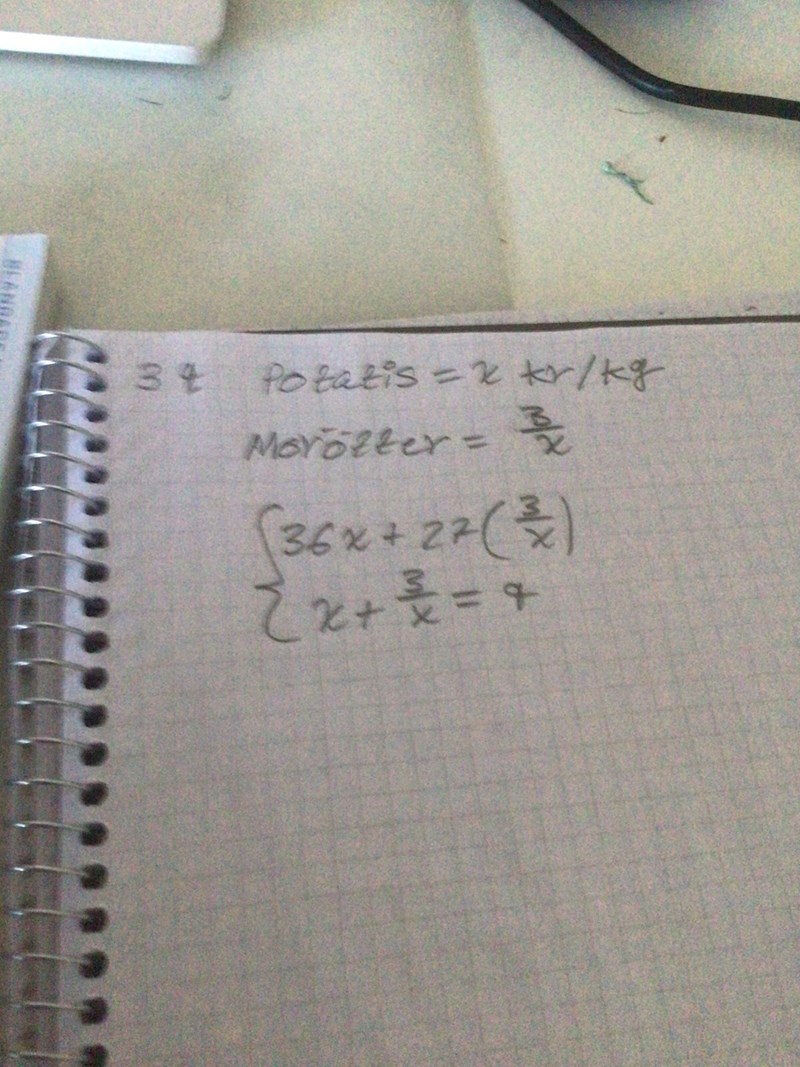 34 Potatis = x kr/kg
Morötter = 3/x
{36x + 27(3/x)
x + 3/x = 4